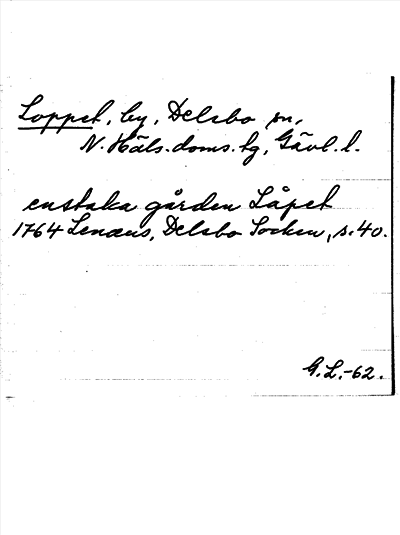 Loppet, by, Delsbo sn,
N. Häls. doms. tg, Gävl. l.
enstaka gården Låpet
1764 Lenæus, Delsbo Socken, s. 40.
G. L. -62.